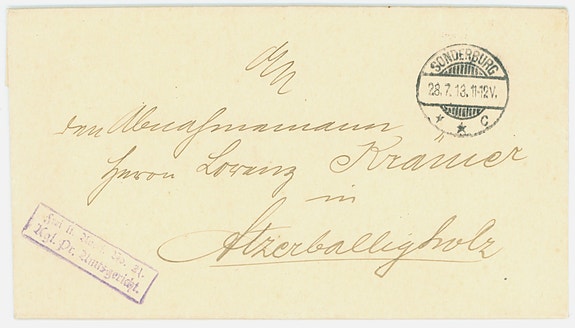 An
den Abnahmemann
Herrn Lorenz Krämer
in
Atzerballigholz
SONDERBURG
28.7.13.11-12V.
* * C
Frei lt. Avers. No. 21.
Kgl. Pr. Amtsgericht.